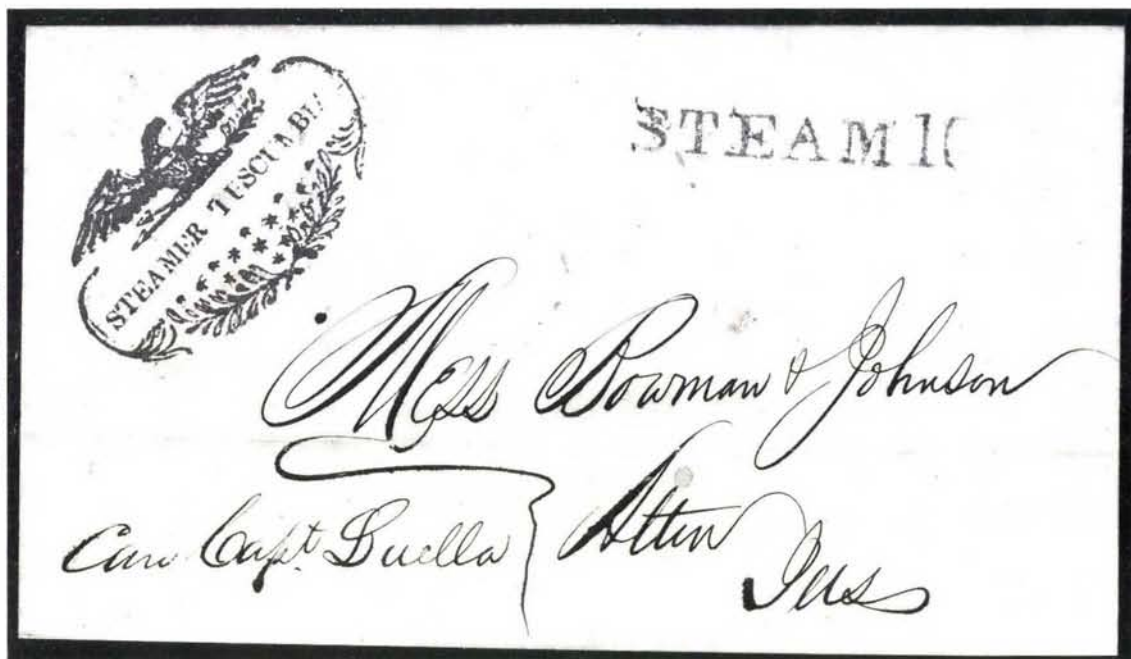 STEAMER TUSCUMBIA
STEAM 10
Mess Bowman & Johnson
Alton
Ills
Care Capt Luella